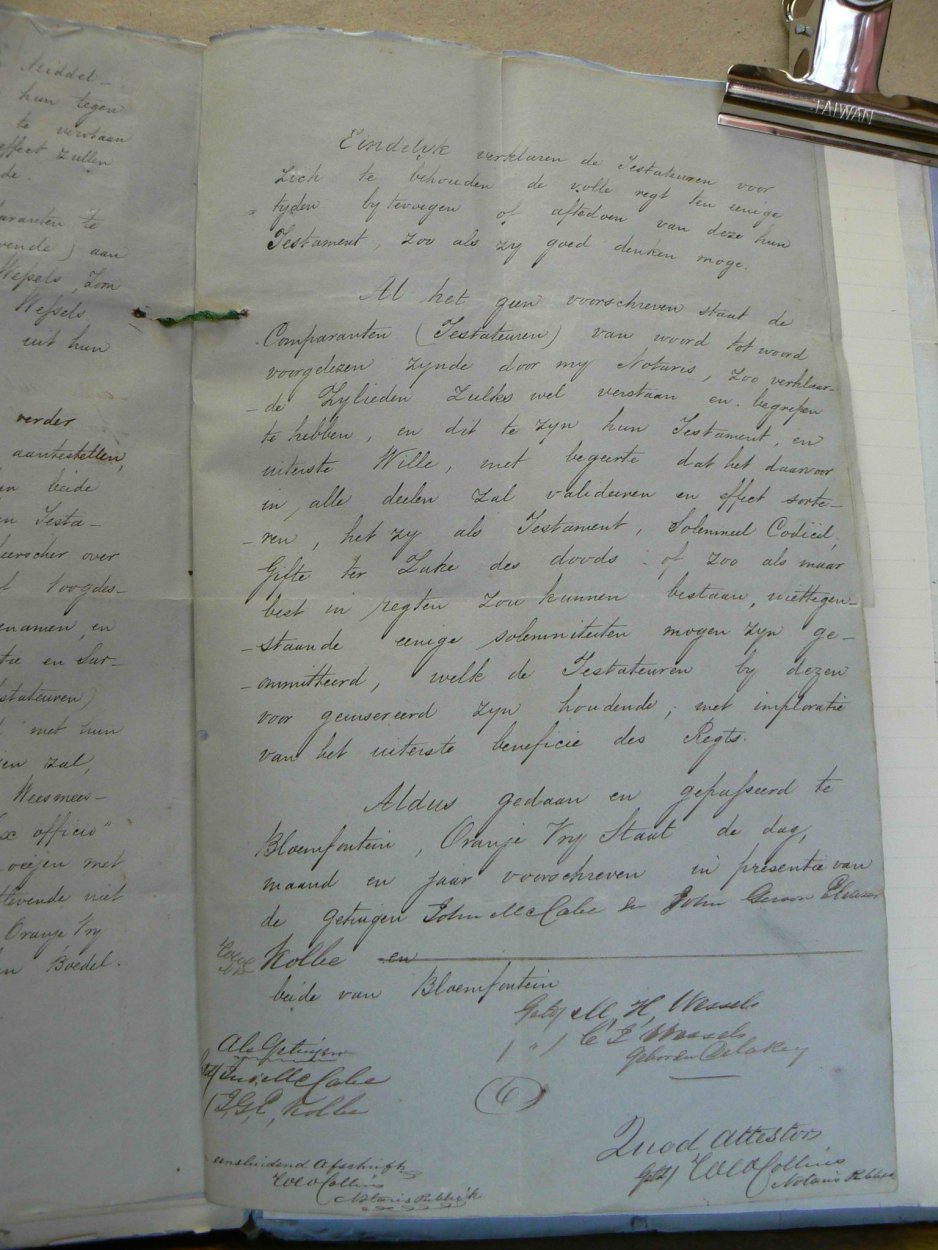 TAIWAN
Middel-
hun tegen
te verstaan
effect zullen
de.
paranten te
vende) aan
Wessels, Zoon
Wessels
uit hun
verder
aantestellen,
beide
en Testa-
heerscher over
Voogdes-
enamen, en
tie en Sur-
statueren)
met hun
en zal,
Weesmees-
ex officio"
oeijen met
tlevende niet
Oranje Vry
n Boedel.
Eindelyk verklaren de Testateuren voor
zich te behouden de volle regt ten eenige
tyden bytevoegen of aftedoen van deze hun
Testament, zoo als zy goed denken moge.
Al het geen voorschreven staat de
Comparanten (Testateuren) van woord tot woord
voorgelezen zynde door my Notaris, zoo verklaar-
-de Zylieden Zulks wel verstaan en begrepen
te hebben, en dit te zyn hun Testament, en
uiterste Wille, met begeerte dat het daarvoor
in alle deelen zal valideren en effect sorte-
-ren, het zy als Testament, Solemneel Codicil,
Gifte ter Zake des doods of zoo als maar
best in regten zou kunnen bestaan, niettegen-
-staande eenige solemniteiten mogen zyn ge-
-ommitteerd, welk de Testateuren by dezen
voor geinsereerd zyn houdende, met imploratie
van het uiterste beneficie des Regts.
Aldus gedaan en gepasseerd te
Bloemfontein, Oranje Vry Staat de dag,
maand en jaar voorschreven in presentie van
de getuigen John McCabe & John Gerson Eleazer
Kolbe en
beide van Bloemfontein
Getk M. H. Wessels
" C E Wessels
Geboren Delakey
Als Getuigen
McCabe
J, G, E, Kolbe
Quod Attestor
Getk Collins
Notaris Publiek
eensluidend Afschrift
Collins
Notaris Publiek